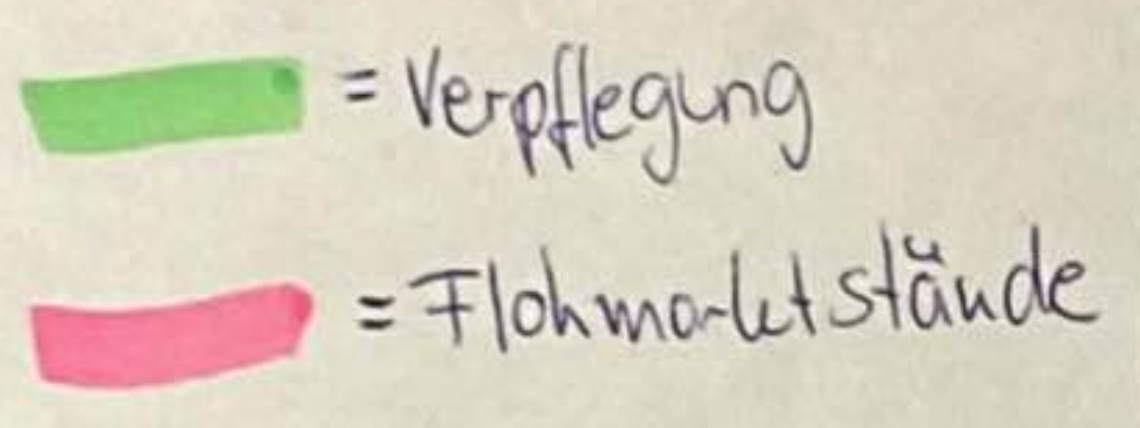 = Verpflegung
= Flohmarktstände